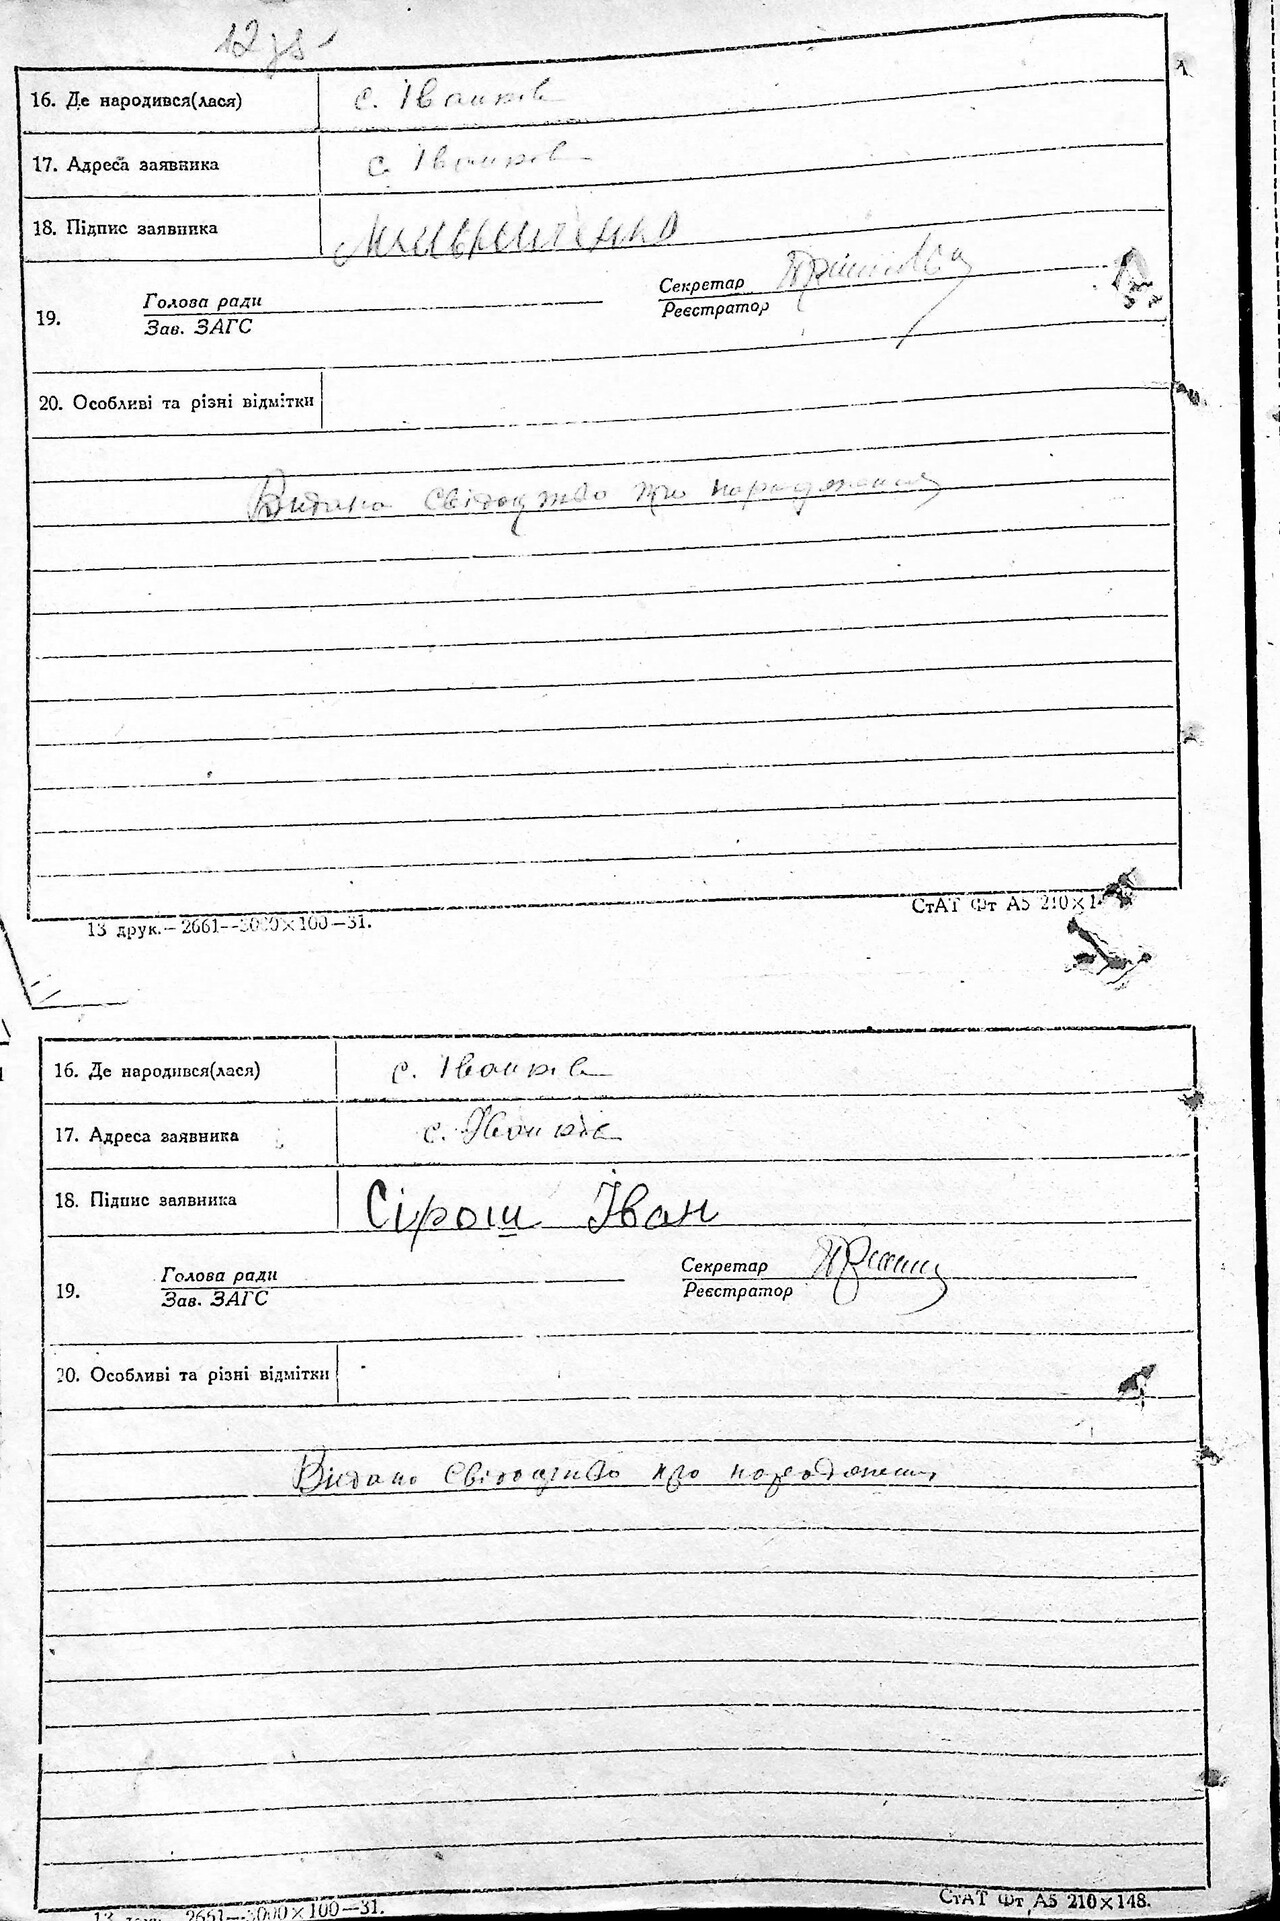 12 зв
16. Де народився(лася) с. Іванків
17. Адреса заявника с. Іванків
18. Підпис заявника
19. Голова ради Секретар
Зав. ЗАГС Реєстратор
20. Особливі та різні відмітки
Видано Свідоцтво про народження
13 друк.—2661—3000×100—31. СтАТ Фт А5 210×1
16. Де народився(лася) с. Іванків
17. Адреса заявника с. Іванків
18. Підпис заявника Сірош Іван
19. Голова ради Секретар
Зав. ЗАГС Реєстратор
20. Особливі та різні відмітки
Видано Свідоцтво про народження
13 2661—3000×100—31. СтАТ Фт А5 210×148.